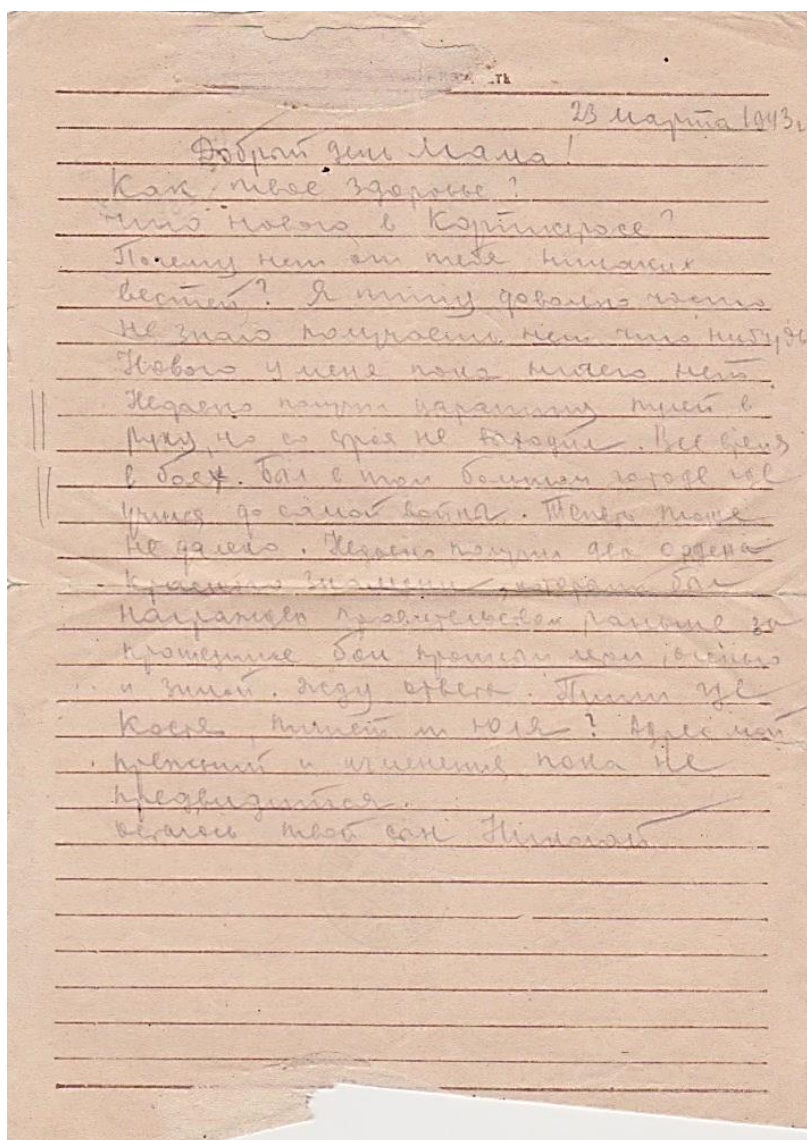 ть
23 марта 1943 г
Добрый день Мама!
Как твое здоровье?
Что нового в Корткеросе?
Почему нет от тебя никаких
вестей? Я пишу довольно часто
не знаю получаешь нет что нибудь
Нового у меня пока ничего нет.
Недавно получил царапину пулей в
руку, но со строя не выходил. Все время
в боях. Был в том большом городе где
учился до самой войны. Теперь тоже
не далеко. Недавно получил два ордена
Красного знамени, которыми был
награжден правительством раньше за
прошедшие бои прошлым летом, осенью
и зимой. Жду ответа. Пиши где
Костя, пишет ли Юля? Адрес мой
прежний и изменения пока не
предвидится.
остаюсь твой сын Николай